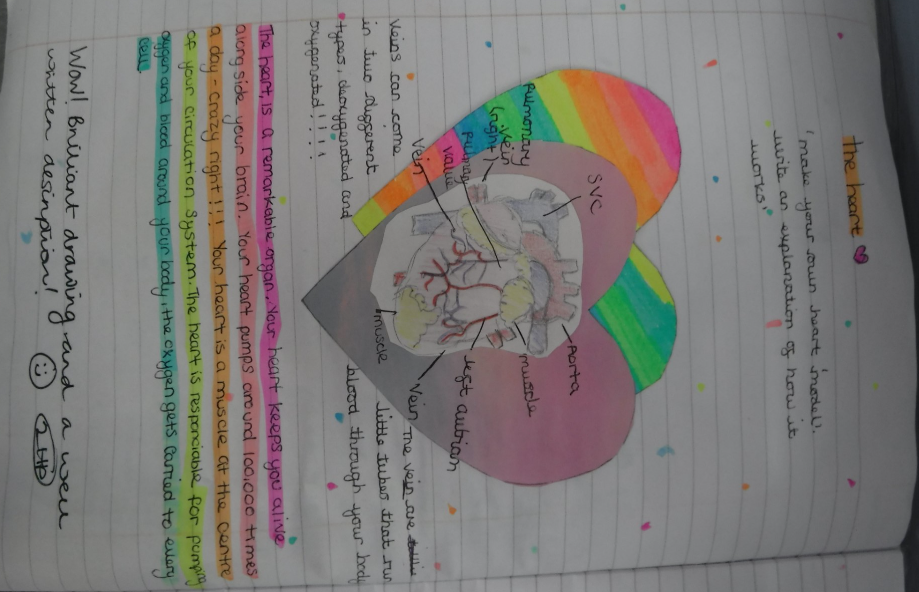 The heart
'make your own heart model'.
write an explanation of how it
works.
SVC
Aorta
Pulmonary
vein
(right)
valve
Vein
muscle
left atrium
muscle
Vein
Veins can come
in two different
types, deoxygenated and
oxygenated!!!!
The vein are
little tubes that run
blood through your body
The heart, is a remarkable organ. Your heart keeps you alive
alongside your brain. Your heart pumps around 100,000 times
a day - crazy right!!! Your heart is a muscle at the centre
of your circulation system. The heart is responciable for pumping
oxygen and blood around your body, the oxygen gets carried to every
cell.
Wow! Brilliant drawing and a well
written description!